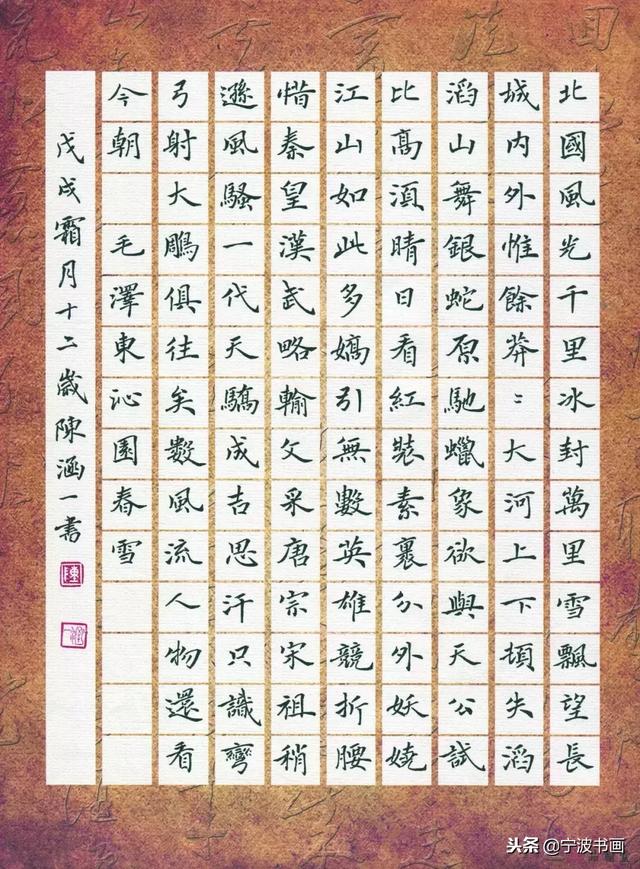 北國風光千里冰封萬里雪飄望長
城内外惟餘莽〻大河上下頓失滔
滔山舞銀蛇原馳蠟象欲與天公試
比高湏晴日看紅裝素裹分外妖嬈
江山如此多嬌引無數英雄競折腰
惜秦皇漢武略輸文采唐宗宋祖稍
遜風騷一代天驕成吉思汗只識彎
弓射大鵰俱往矣數風流人物還看
今朝 毛澤東沁園春雪
戊戌霜月十二歲陳涵一書
陳
头条@宁波书画